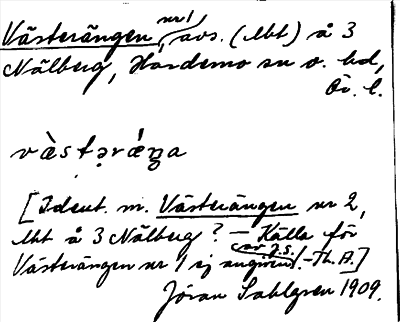 Västerängen, nr 1, avs. (lht) å 3
Nälberg, Hardemo sn o. hd,
Ör. l.
vàstərǽŋa
[Ident. m. Västerängen nr 2,
lht å 3 Nälberg? – Källa för
Västerängen nr 1 ej angiven av J.S. – Th. A.]
Jöran Sahlgren 1909.